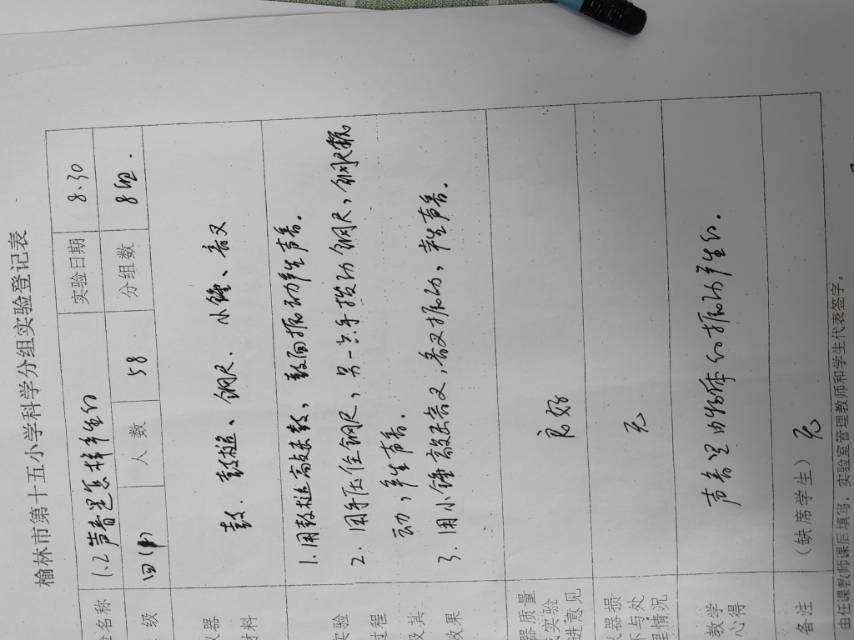 榆林市第十五小学科学分组实验登记表
名称 1.2声音是怎样产生的 实验日期 8.30
级 人数 58 分组数 8组.
仪器
材料
鼓、鼓槌、钢尺、小锤、音叉
实验
过程
及其
效果
1.用鼓槌敲击鼓,鼓面振动产生声音。
2.用手压住钢尺,另一只手拨动钢尺,钢尺振
动,产生声音。
3.用小锤敲击音叉,音叉振动,产生声音。
器质量
实验
进意见
良好
仪器损
坏与处
理情况
无
教学
心得
声音是由物体的振动产生的.
备注 (缺席学生) 无
由任课教师课后填写,实验室管理教师和学生代表签字。